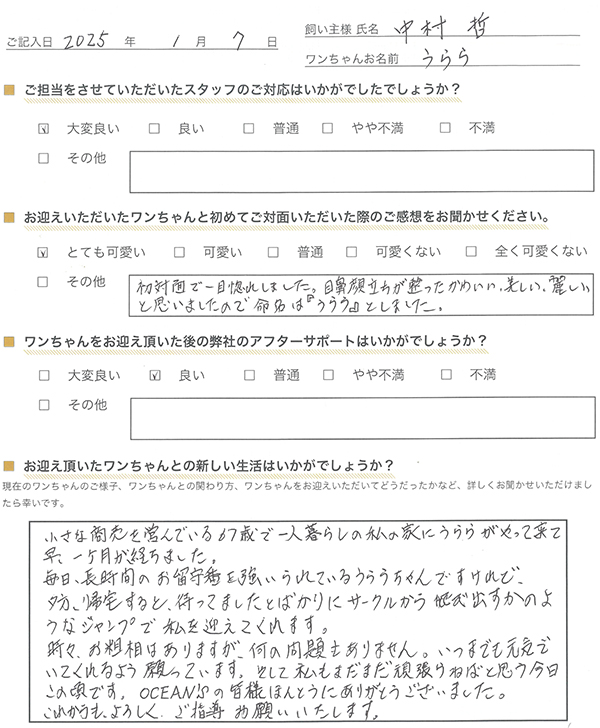 ご記入日 2025 年 1 月 7 日
飼い主様 氏名 中村 哲
ワンちゃんお名前 うらら
ご担当をさせていただいたスタッフのご対応はいかがでしたでしょうか?
大変良い 良い 普通 やや不満 不満
その他
お迎えいただいたワンちゃんと初めてご対面いただいた際のご感想をお聞かせください。
とても可愛い 可愛い 普通 可愛くない 全く可愛くない
その他
初対面で一目惚れしました。目鼻顔立ちが整ったかわいい、美しい、麗しい
と思いましたので命名は『うらら』としました。
ワンちゃんをお迎え頂いた後の弊社のアフターサポートはいかがでしょうか?
大変良い 良い 普通 やや不満 不満
その他
お迎え頂いたワンちゃんとの新しい生活はいかがでしょうか?
現在のワンちゃんのご様子、ワンちゃんとの関わり方、ワンちゃんをお迎えいただいてどうだったかなど、詳しくお聞かせいただけまし
たら幸いです。
小さな商売を営んでいる67歳で一人暮らしの私の家にうららがやって来て
早、一ケ月が経ちました。
毎日、長時間のお留守番を強いられているうららちゃんですけれど、
夕方、帰宅すると、待ってましたとばかりにサークルから飛び出すかのよ
うなジャンプで私を迎えてくれます。
時々、お粗相はありますが、何の問題もありません。いつまでも元気で
いてくれるよう願っています。そして私もまだまだ頑張らねばと思う今日
この頃です。OCEAN'Sの皆様ほんとうにありがとうございました。
これからも、よろしく、ご指導お願いいたします。